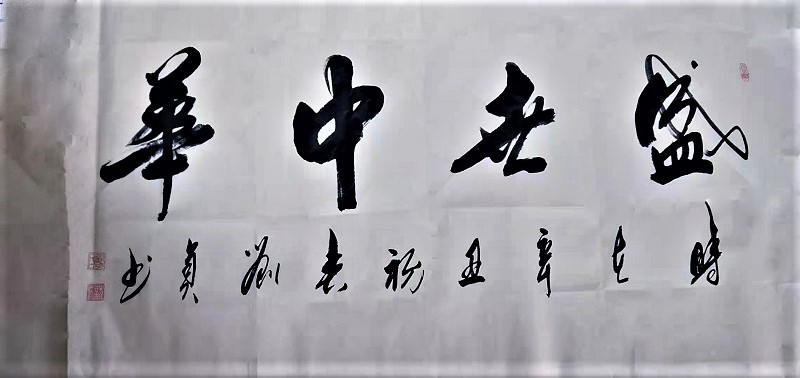 盛世中華
時在辛丑初春劉貞书